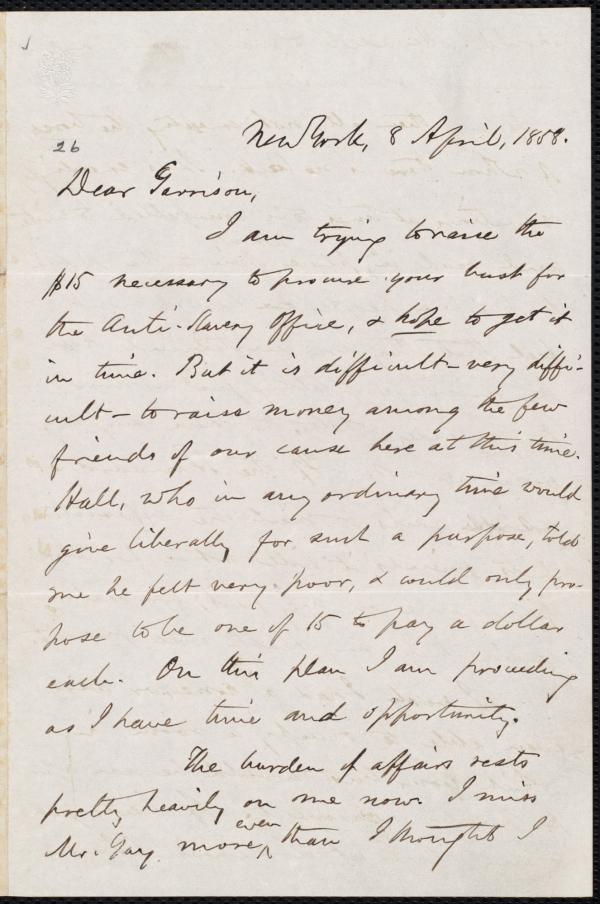 26
New York, 8 April, 1858.
Dear Garrison,
I am trying to raise the
$15 necessary to procure your bust for
the Anti-Slavery Office, & hope to get it
in time. But it is difficult – very diffi-
cult – to raise money among the few
friends of our cause here at this time.
Hall, who in any ordinary time would
give liberally for such a purpose, told
me he felt very poor, & could only pro-
pose to be one of 15 to pay a dollar
each. On this plan I am proceeding
as I have time and opportunity.
The burden of affairs rests
pretty heavily on me now. I miss
Mr. Gay more even than I thought I